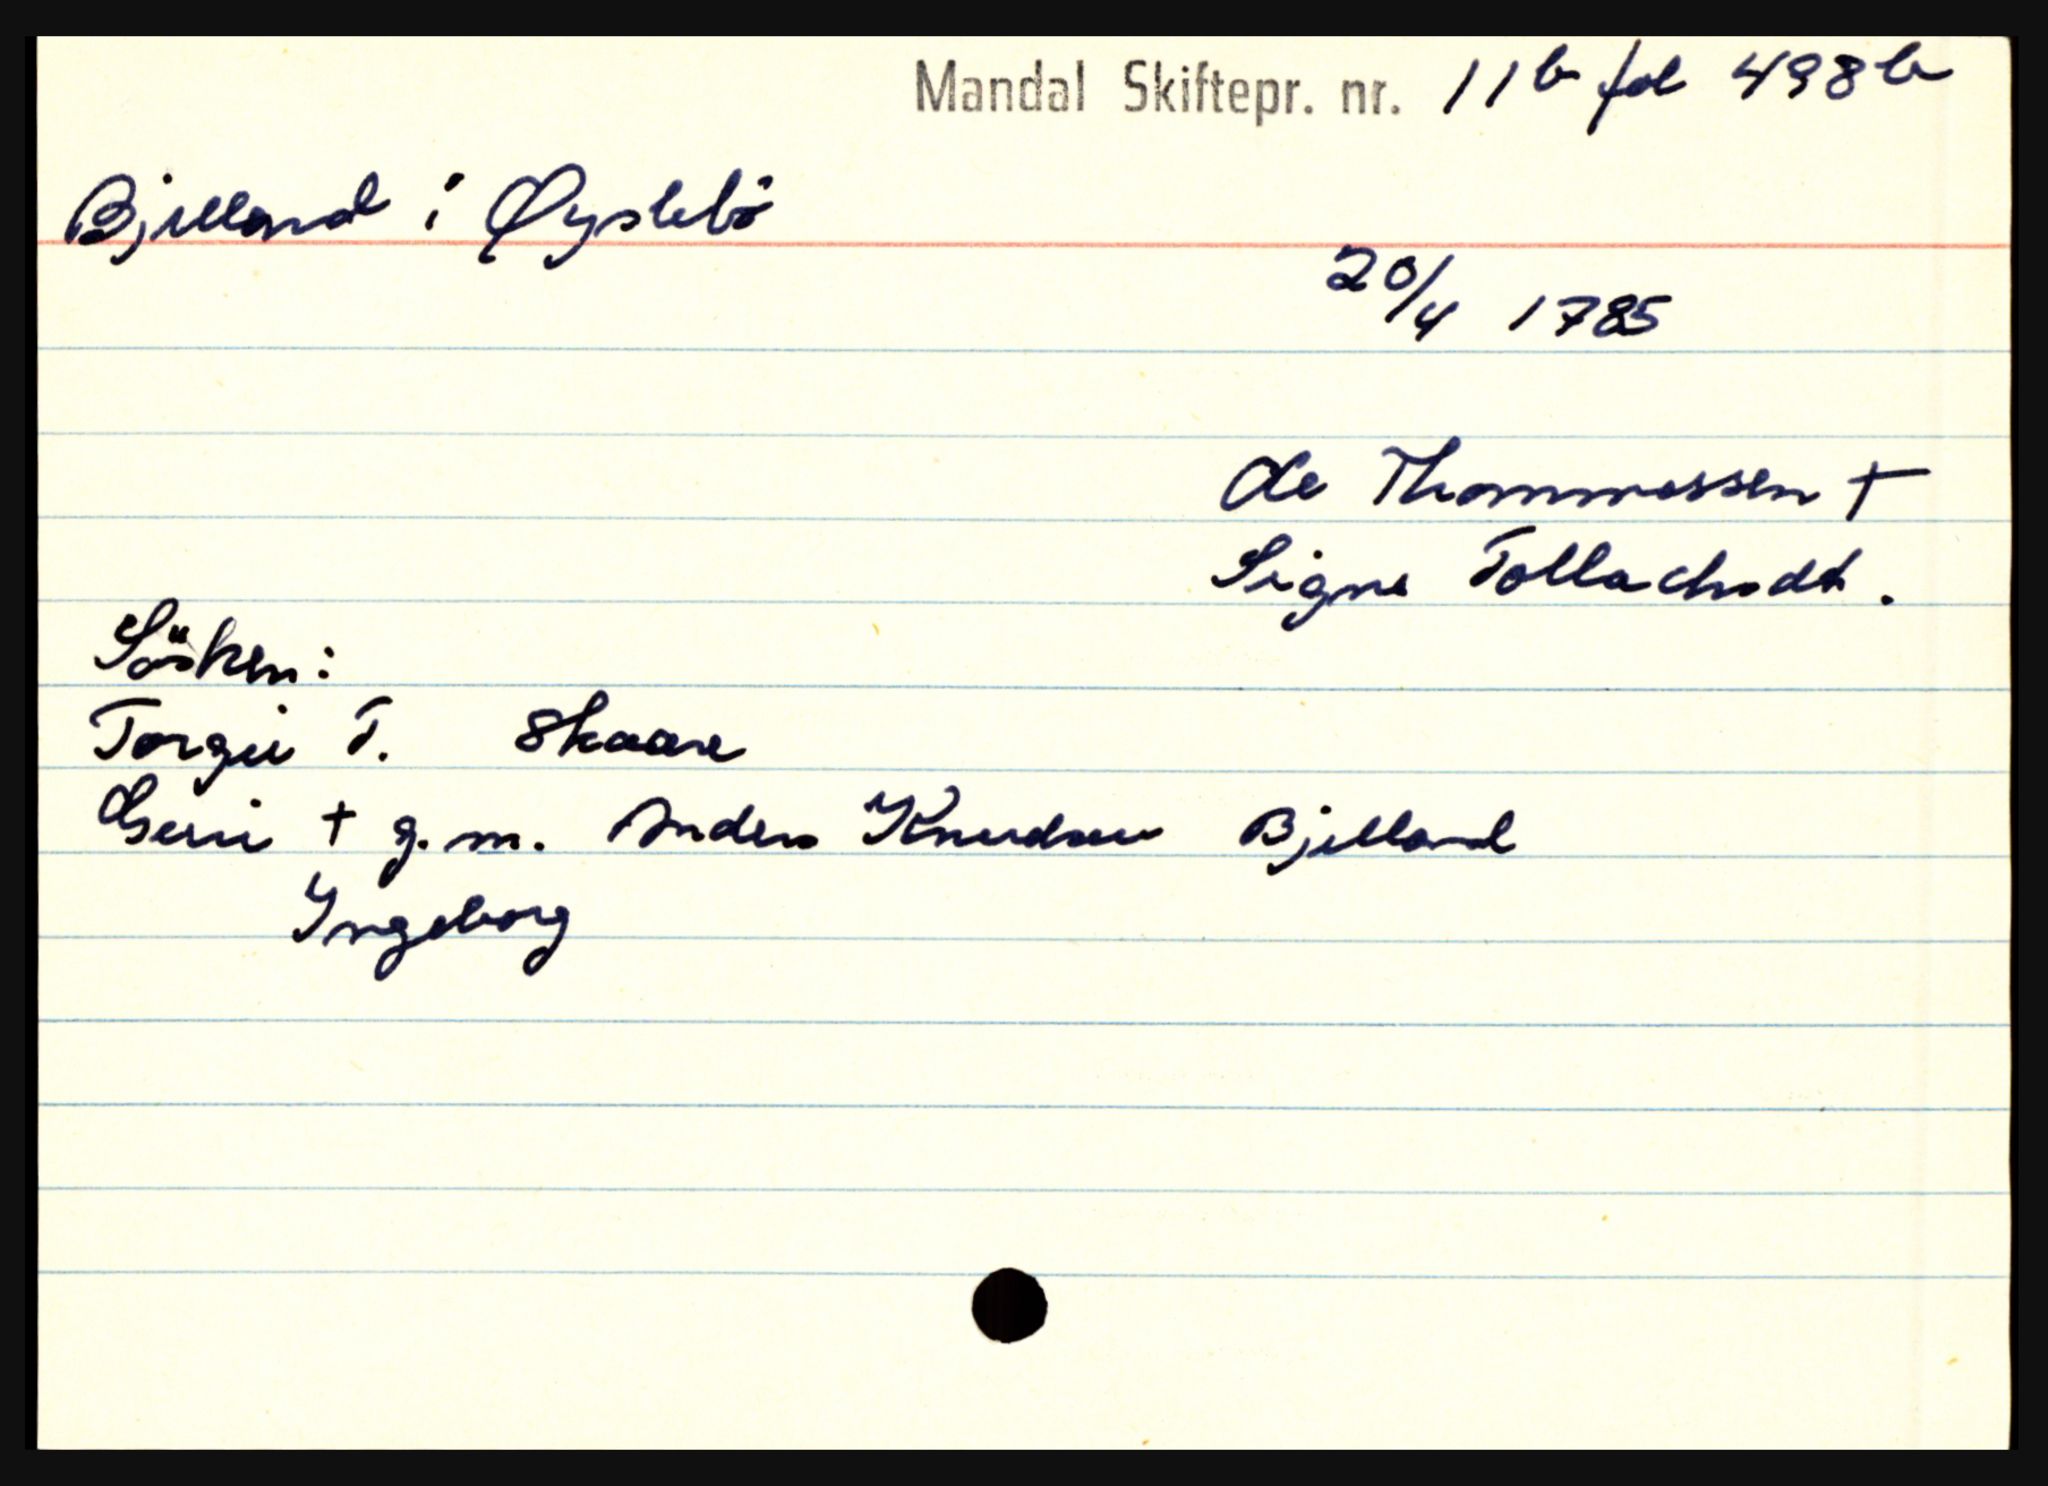 Mandal Skiftepr. nr. 11b fol 498b
Bjelland i Øyslebö
20/4 1785
Ole Thommessen †
Signe Tollachsdt.
Sösken:
Torgei T. Skaare
Berri † g. m. Anders Knudsen Bjelland
Ingeborg